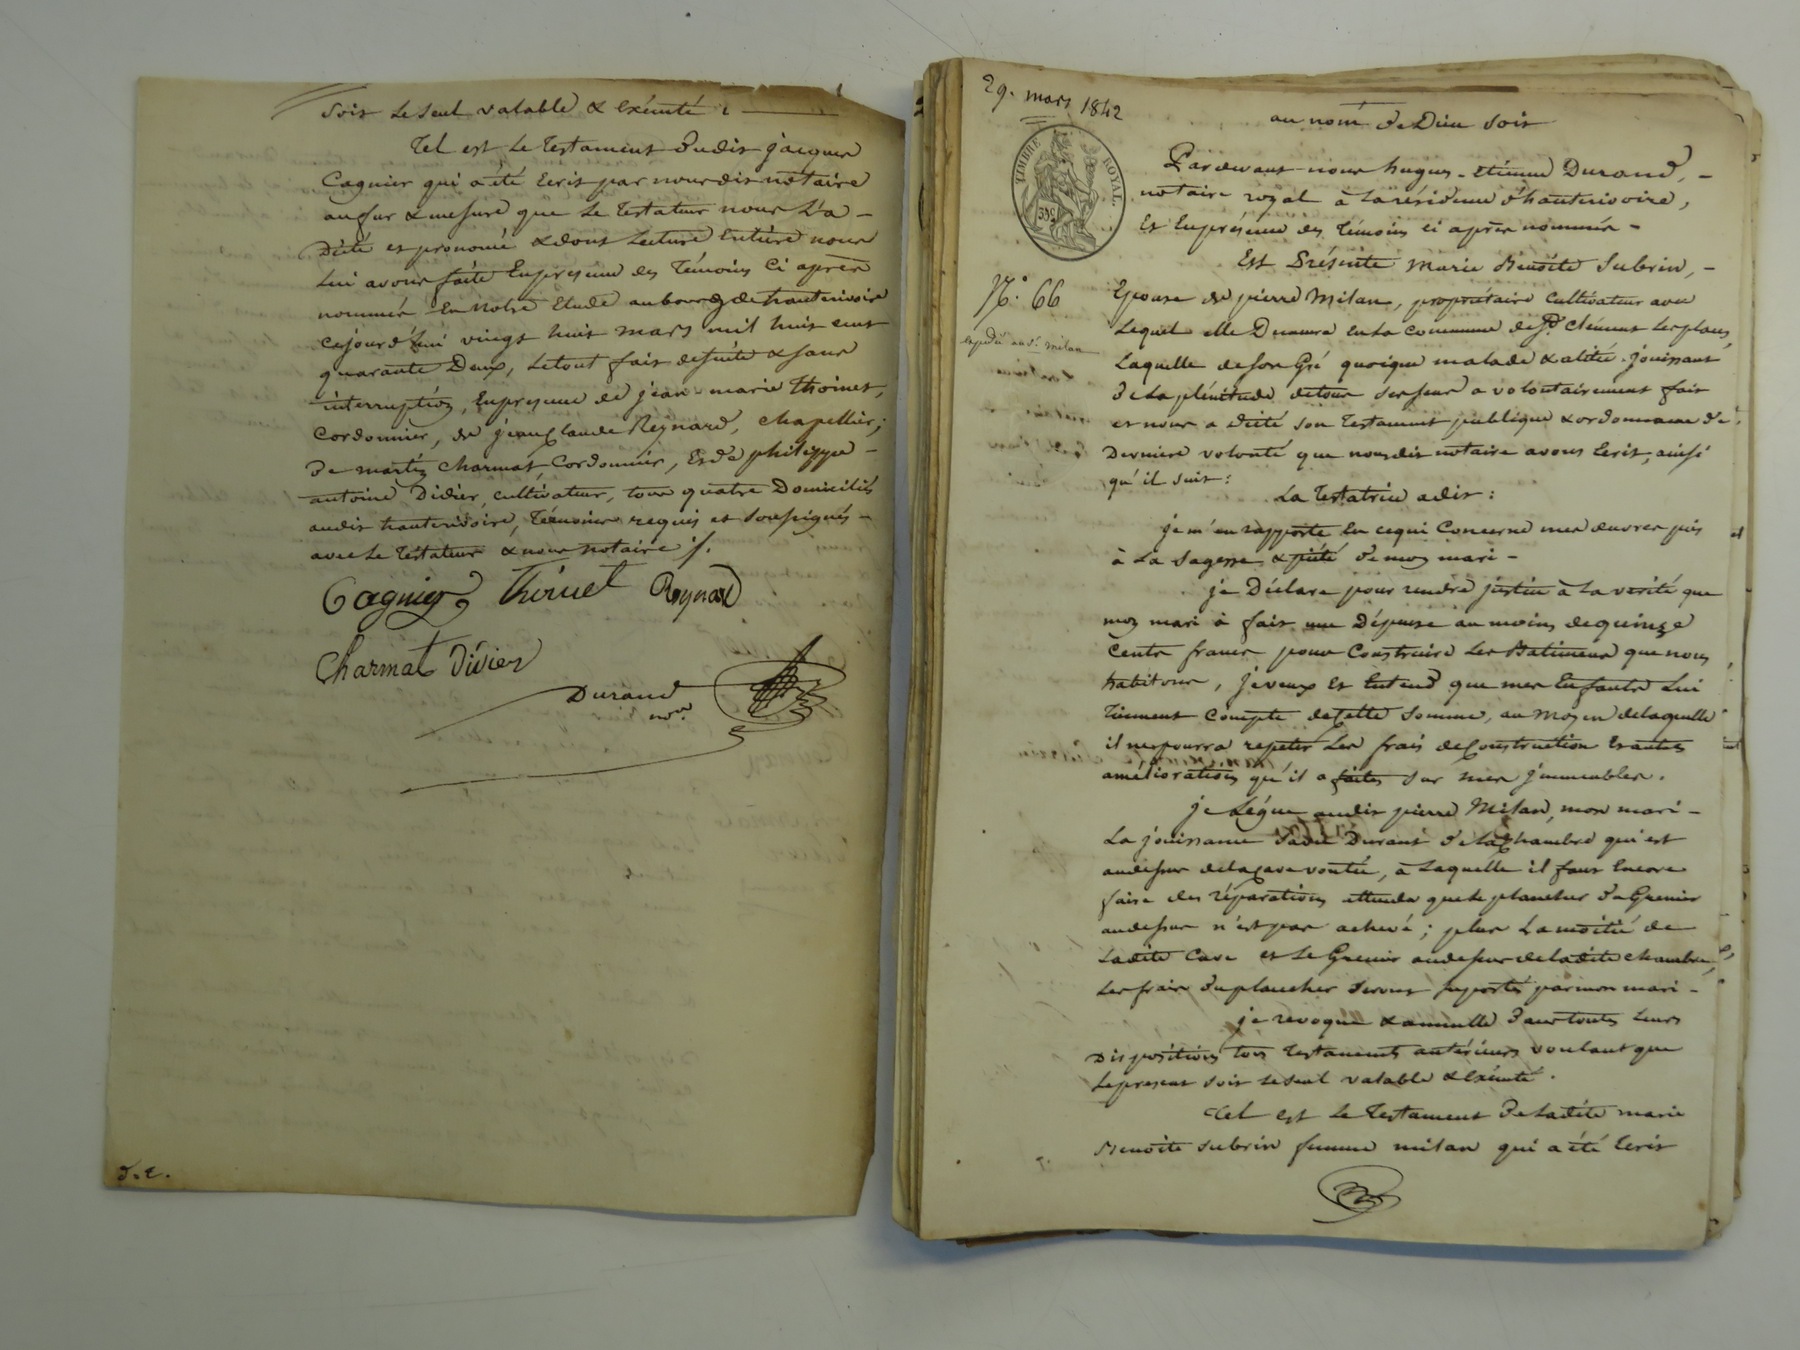 soit le seul valable & exécuté ;
Tel est le testament dudit jacques
Cagnier qui a été Ecrit par nous dit notaire
au fur & mesure que le testateur nous l'a
Dicté et prononcé & dont lecture Entière nous
lui avons faite En presence des Témoins ci après
nommés En notre Etude au bourg de hauterivoire
cejourd'hui vingt huit mars mil huit cent
quarante Deux, le tout fait de suite & sans
interruption, En presence de jean-marie Thoinet,
Cordonnier, de jean Claude Reynard, chapellier,
de martin Charmat, Cordonnier, Et de philippe
antoine Didier, cultivateur, tous quatre Domiciliés
audit hauterivoire, Témoins requis et soussignés
avec le testateur & nous notaire ./.
Cagnier Thoinet Reynard
Charmat Didier
Durand
nore
d. r.
29. mars 1842
au nom de Dieu soit
TIMBRE ROYAL
35c
Pardevant nous hugues-Etienne Durand,
notaire royal à la résidence d'hauterivoire,
Et En présence des Témoins ci après nommés
Est Présente Marie Benoite Subrin,
N.° 66
Epouse de pierre Milan, propriétaire cultivateur avec
Expédié au sr. milan
Lequel elle Demeure En la commune de St. Clément les places,
Laquelle de son Gré quoique malade & alitée jouissant
de la plénitude de tous ses sens a volontairement fait
et nous a dicté son testament publique & ordonnance de
Derniere volonté que nous dit notaire avons Ecrit, ainsi
qu'il suit :
La Testatrice a dit :
je m'en rapporte En ce qui Concerne mes œuvres pies
à la sagesse & piété de mon mari
je Déclare pour rendre justice à la verité que
mon mari à fait une Dépense au moins de quinze
Cents francs pour Construire les Batimens que nous
habitons, je veux Et Entend que mes Enfants lui
Tiennent Compte de Cette Somme, au moyen de laquelle
il ne pourra repeter les frais de Construction Et autres
améliorations qu'il a faites sur mes jmmeubles.
je Légue audit pierre Milan, mon mari
La jouissance sa vie Durant de la Chambre qui est
au dessus de la Cave voutée, à laquelle il faut Encore
faire des réparations attendu que le plancher du Grenier
au dessus n'est pas achevé ; plus la moitié de
ladite Cave et le Grenier au dessus de ladite chambre,
les frais du plancher seront suportés par mon mari
je revoque & annulle dans toutes leurs
Dispositions tous Testaments antérieurs voulant que
le present soit le seul valable & Exécuté.
Tel est le Testament de ladite marie
Benoite subrin femme milan qui a été Ecrit